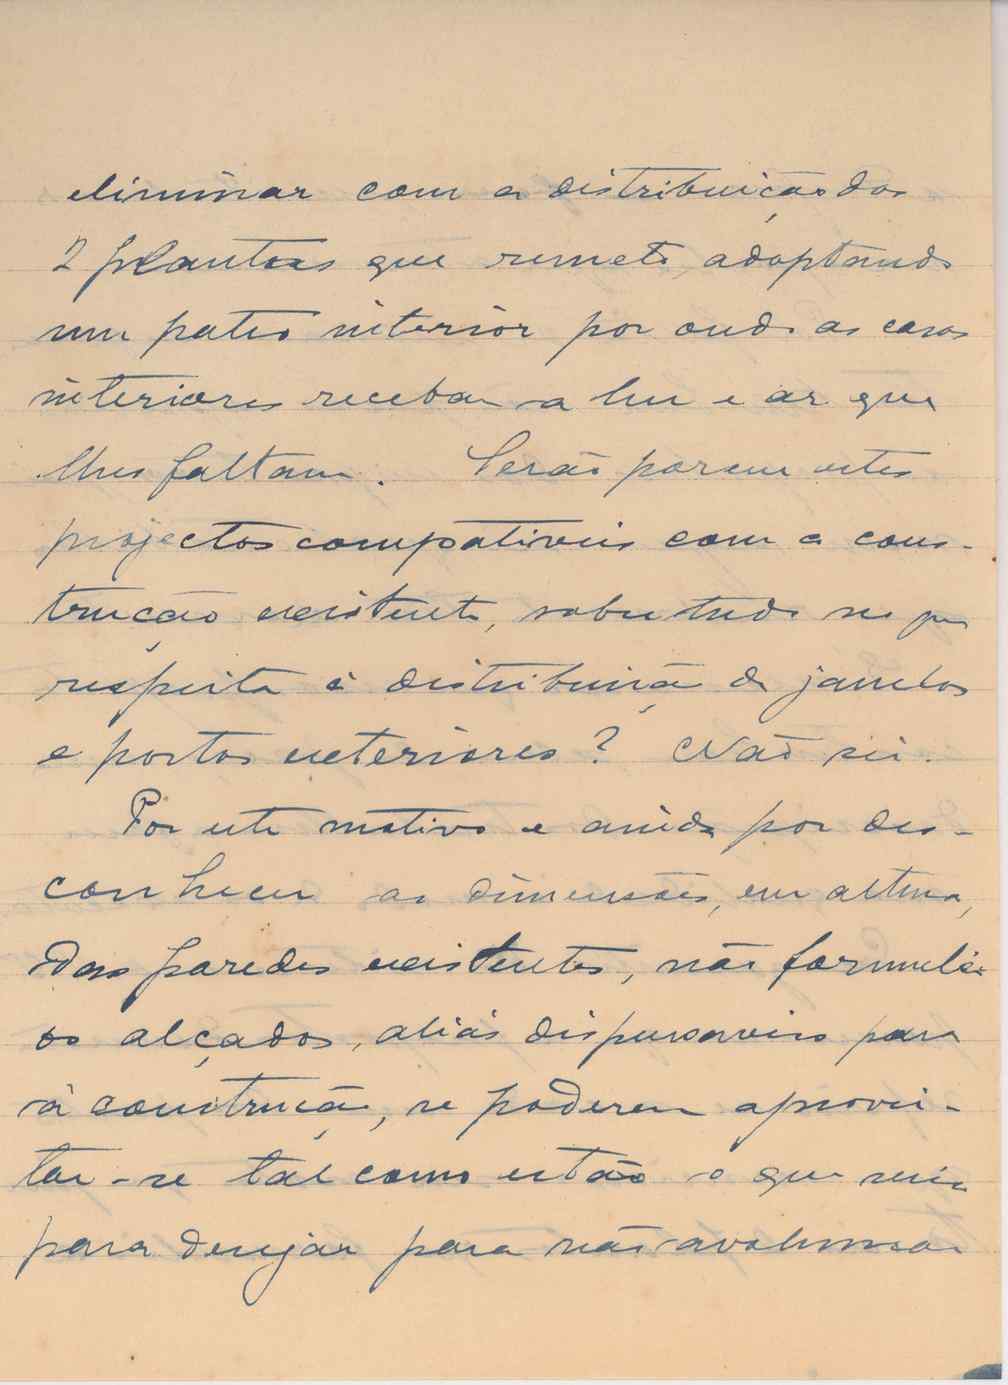 eliminar com a distribuição das
2 plantas que remeto, adoptando
um pateo interior por onde as casas
interiores recebam a luz e ar que
lhes faltam. Serão porem estes
projectos compativeis com a cons-
trução existente, sobretudo no que
respeita á distribuição de janelas
e portas exteriores? Não sei.
Por este motivo e ainda por des-
conhecer as dimensões, em altura,
das paredes existentes, não formulei
os alçados, aliás dispensaveis para
a construção, se poderem aprovei-
tar-se tal como estão o que seria
para desejar para não avolumar